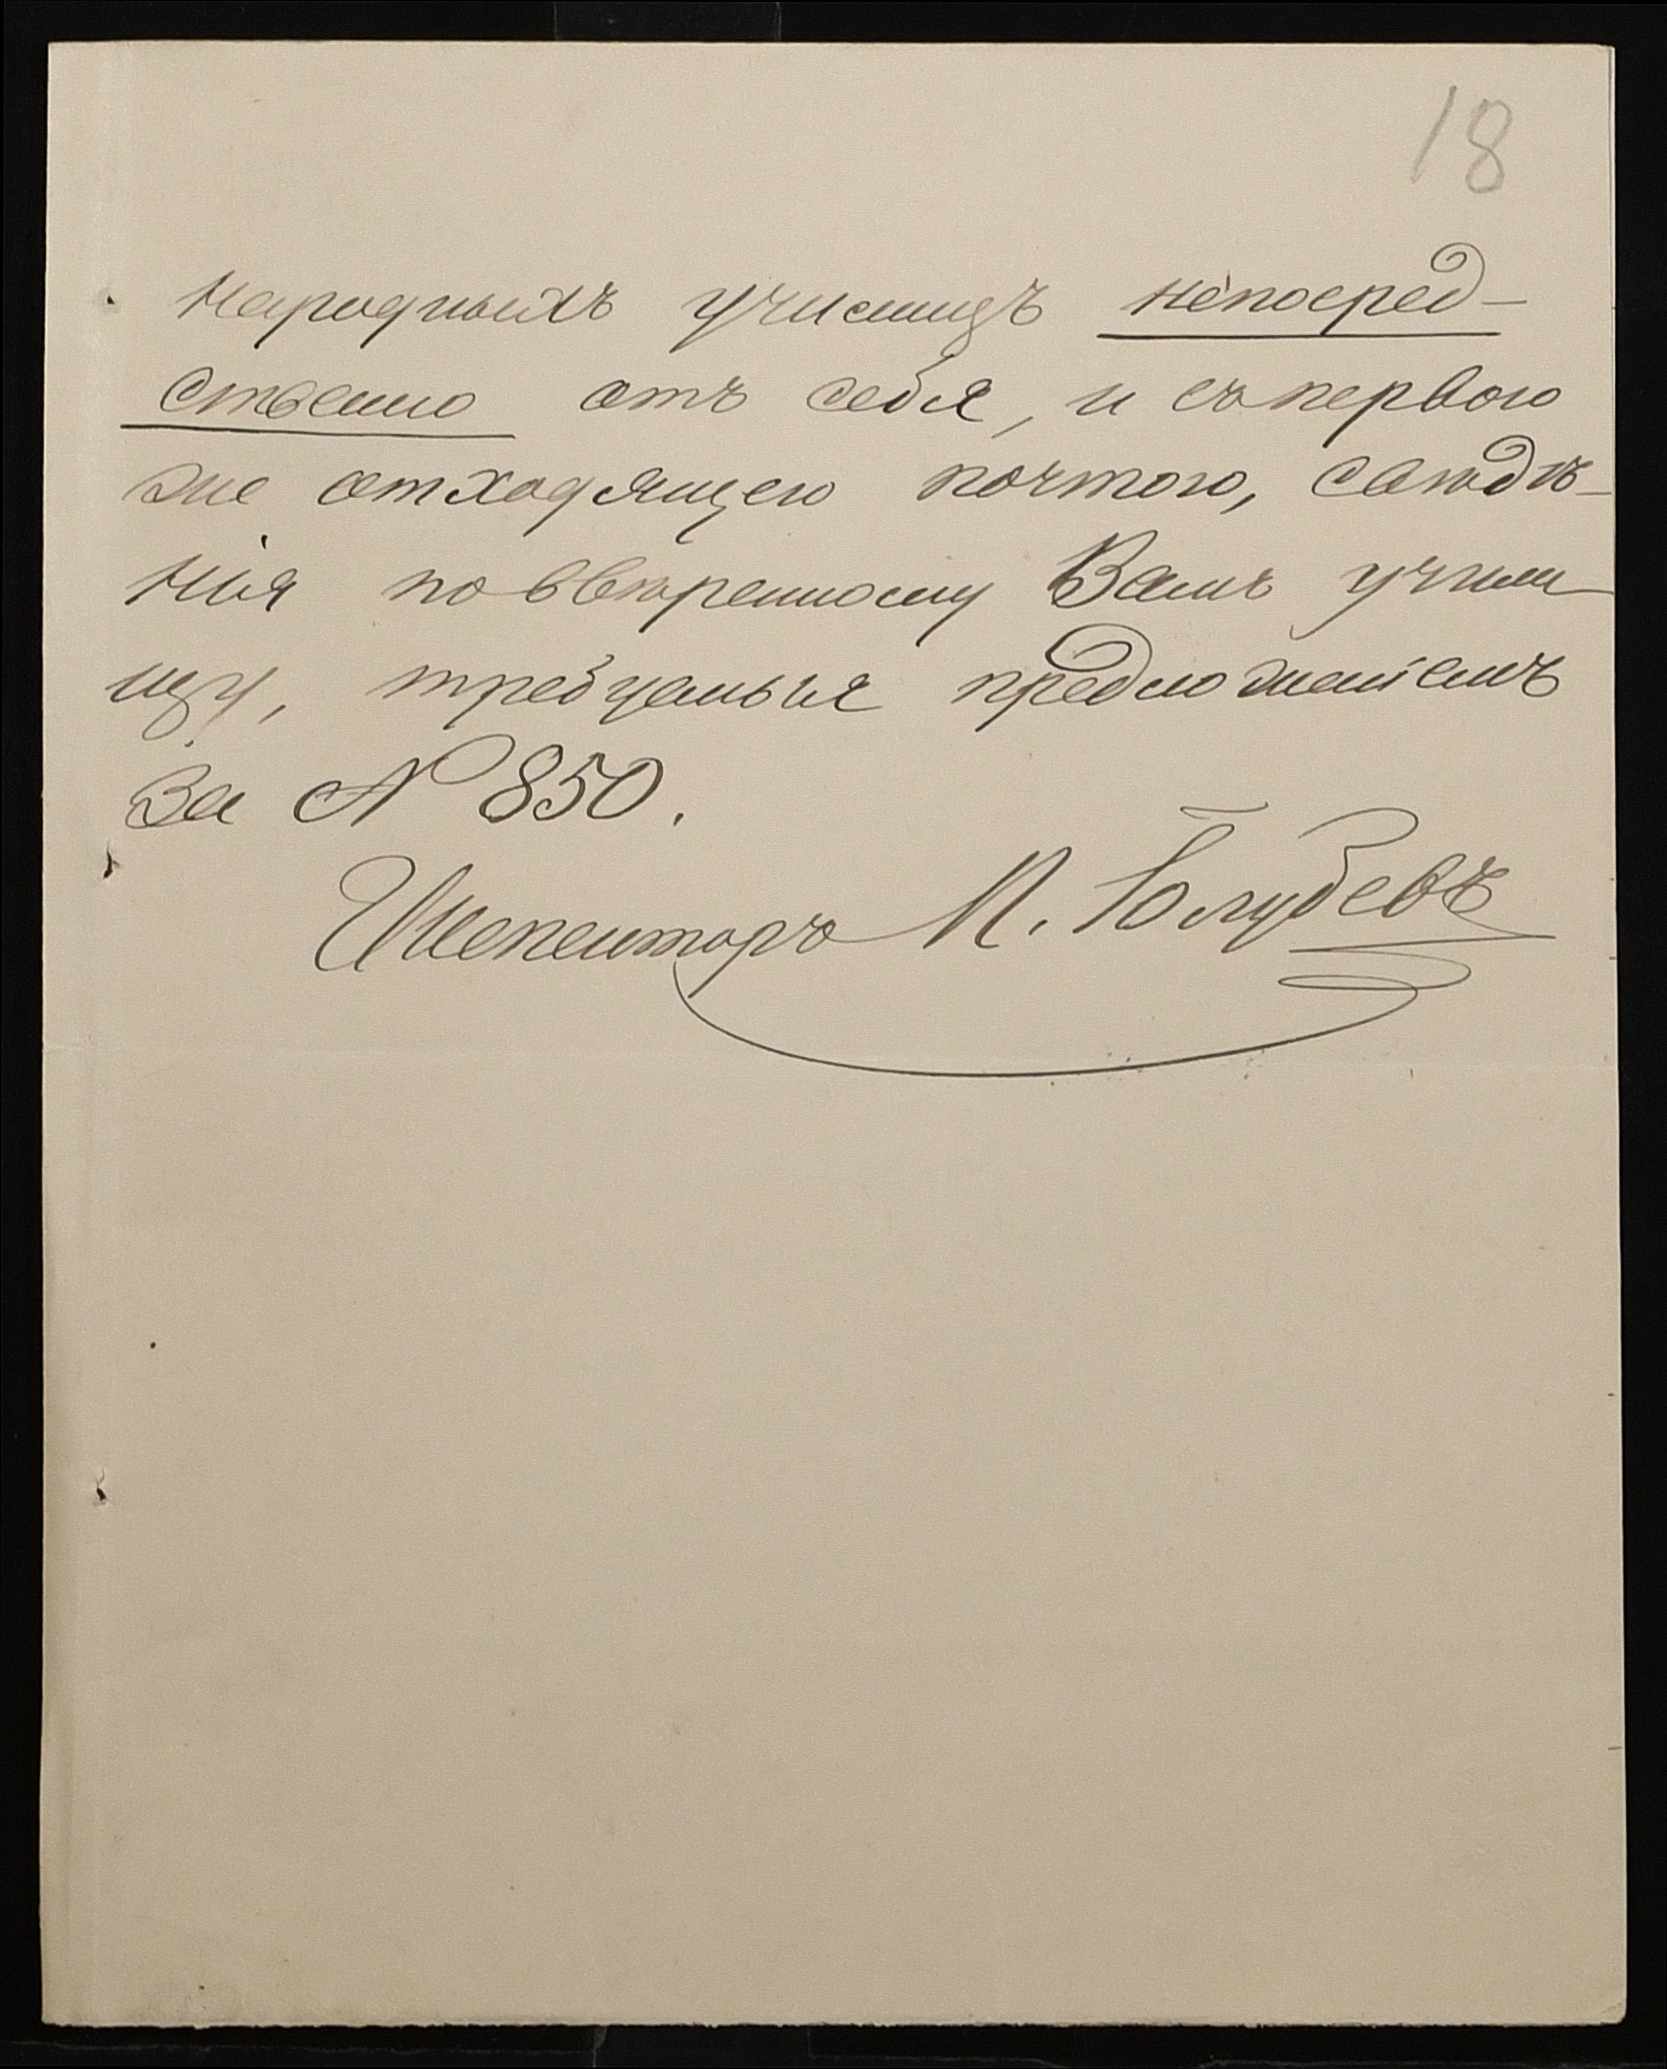 18
народныхъ училищъ непосред-
ственно отъ себя, и съ первою
же отходящею почтою, свѣдѣ-
нія по ввѣренному Вамъ учили-
щу, требуемыя предложеніемъ
за № 850.
Инспекторъ М. Голубевъ